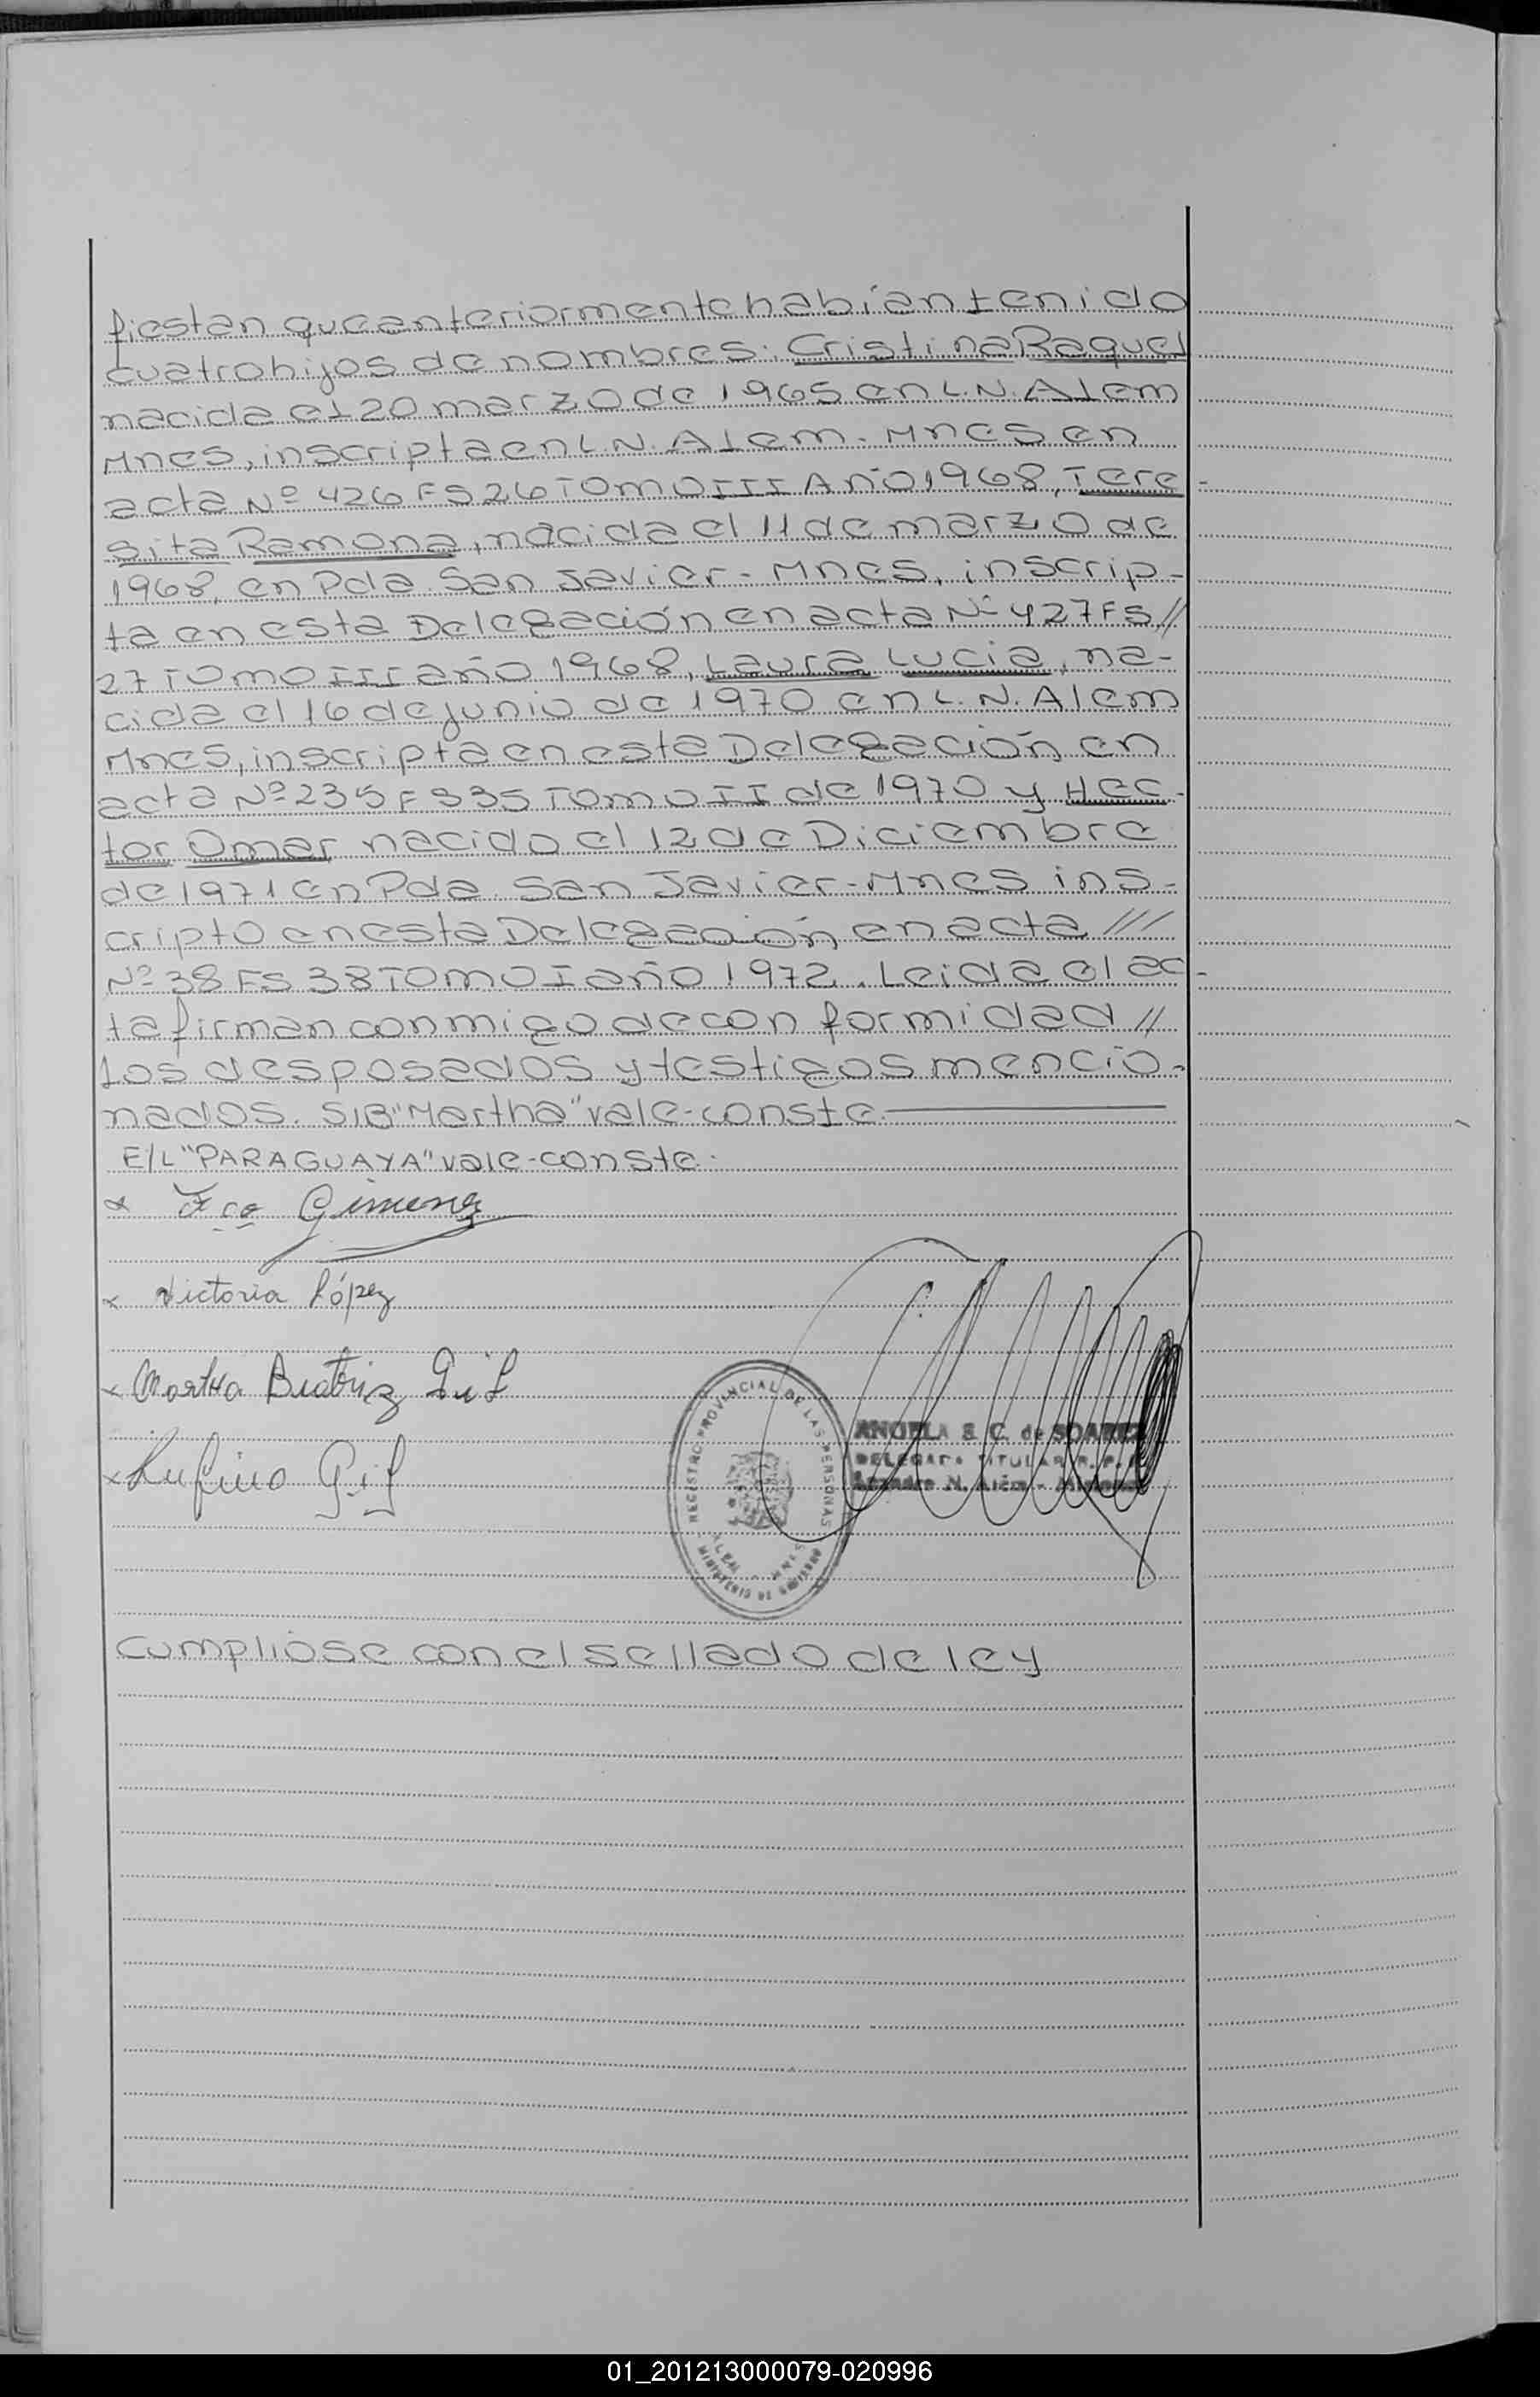 fiestan que anteriormente habían tenido
cuatro hijos de nombres: Cristina Raquel
nacida el 20 marzo de 1965 en L.N. Alem
Mnes, inscripta en L.N. Alem - Mnes en
acta Nº 426 FS 26 TOMO III Año 1968, Tere
sita Ramona, nacida el 11 de marzo de
1968, en Pda. San Javier - Mnes, inscrip-
ta en esta Delegación en acta Nº 427 FS //
27 TOMO III año 1968, Laura Lucia, na-
cida el 16 de junio de 1970 en L.N. Alem
Mnes, inscripta en esta Delegación en
acta Nº 235 FS 35 TOMO II de 1970 y Hec-
tor Omar nacido el 12 de Diciembre
de 1971 en Pda. San Javier - Mnes ins-
cripto en esta Delegación en acta ///
Nº 38 FS 38 TOMO I año 1972. Leida el ac-
ta firman conmigo de con formidad //
los desposados y testigos mencio-
nados. S/B "Martha" vale - conste.
E/L "PARAGUAYA" vale - conste.
x Fco Gimenez
x Victoria López
x Martha Beatriz Gil
x Rufino Gil
REGISTRO PROVINCIAL DE LAS PERSONAS
ALEM - MNES
MINISTERIO DE GOBIERNO
ANGELA S. C. de SOAREZ
DELEGADA TITULAR R. P.
Leandro N. Alem - Misiones
cumplióse con el sellado de ley
01_201213000079-020996